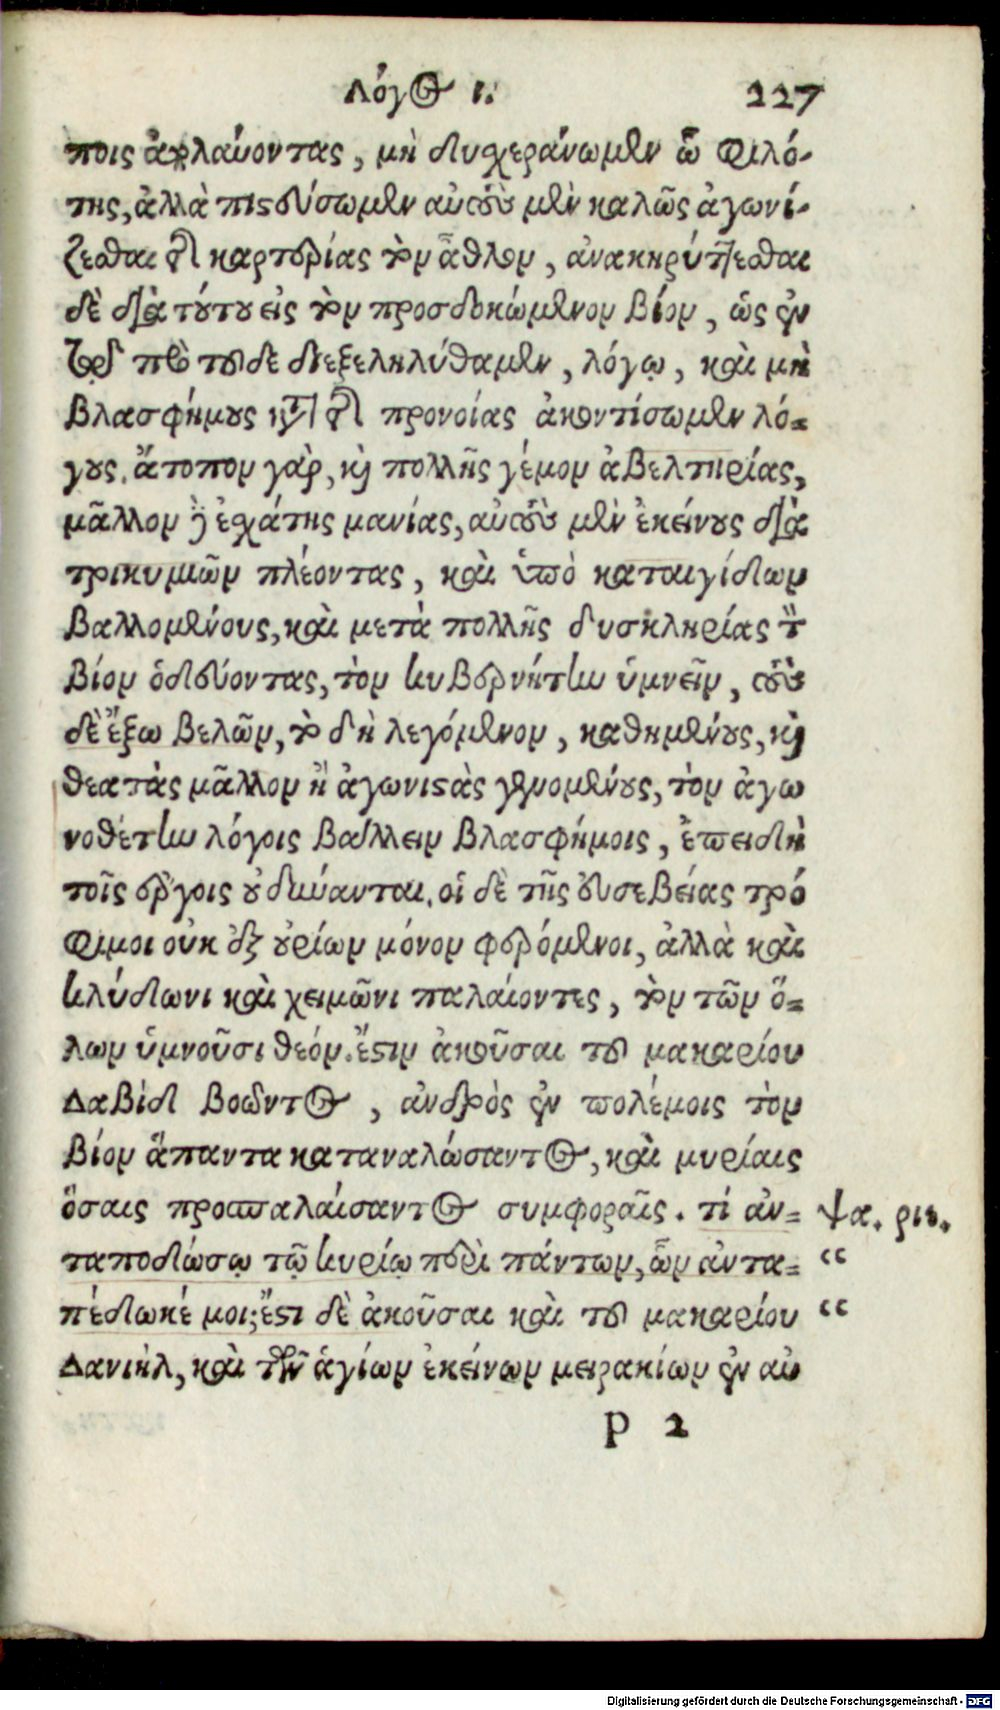 Λόγος ι. 227
ποις ἀπολαύοντας, μὴ δυχεράνωμεν ὦ φιλό-
της, ἀλλὰ πιστεύσωμεν αὐτοὺς μὲν καλῶς ἀγωνί-
ζεσθαι τῆς καρτερίας τὸν ἆθλον, ἀνακηρύττεσθαι
δὲ διὰ τούτου εἰς τὸν προσδοκώμενον βίον, ὡς ἐν
τῷ πρὸ τοῦδε διεξεληλύθαμεν, λόγῳ, καὶ μὴ
βλασφήμους κατὰ τῆς προνοίας ἀκοντίσωμεν λό-
γους. ἄτοπον γὰρ, καὶ πολλῆς γέμον ἀβελτηρίας,
μᾶλλον δὲ ἐσχάτης μανίας, αὐτοὺς μὲν ἐκείνους διὰ
τρικυμιῶν πλέοντας, καὶ ὑπὸ καταιγίδων
βαλλομένους, καὶ μετὰ πολλῆς δυσκληρίας τὸν
βίον ὁδεύοντας, τὸν κυβερνήτην ὑμνεῖν, τοὺς
δὲ ἔξω βελῶν, τὸ δὴ λεγόμενον, καθημένους, καὶ
θεατὰς μᾶλλον ἢ ἀγωνιστὰς γενομένους, τὸν ἀγω
νοθέτην λόγοις βάλλειν βλασφήμοις, ἐπειδὴ
τοῖς ἔργοις οὐ δύνανται. οἱ δὲ τῆς εὐσεβείας τρό
φιμοι οὐκ ἐξ οὐρίων μόνον φερόμενοι, ἀλλὰ καὶ
κλύδωνι καὶ χειμῶνι παλαίοντες, τὸν τῶν ὅ-
λων ὑμνοῦσι θεόν. ἔστιν ἀκοῦσαι τοῦ μακαρίου
Δαβὶδ βοῶντος, ἀνδρὸς ἐν πολέμοις τὸν
βίον ἅπαντα καταναλώσαντος, καὶ μυρίαις
ὅσαις προσπαλαίσαντος συμφοραῖς. τί ἀν- ψα. ριε.
ταποδώσω τῷ κυρίῳ περὶ πάντων, ὧν ἀντα- “
πέδωκέ μοι; ἔστι δὲ ἀκοῦσαι καὶ τοῦ μακαρίου “
Δανιὴλ, καὶ τῶν ἁγίων ἐκείνων μειρακίων ἐν αὐ
p 2
Digitalisierung gefördert durch die Deutsche Forschungsgemeinschaft - DFG